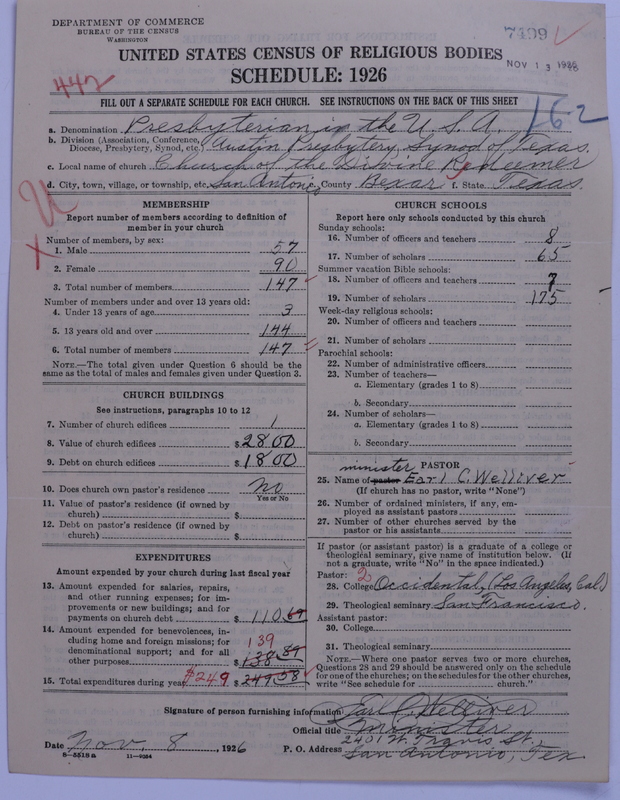 DEPARTMENT OF COMMERCE
BUREAU OF THE CENSUS
WASHINGTON
7499
NOV 13 1926
UNITED STATES CENSUS OF RELIGIOUS BODIES
SCHEDULE: 1926
442
FILL OUT A SEPARATE SCHEDULE FOR EACH CHURCH. SEE INSTRUCTIONS ON THE BACK OF THIS SHEET
162
a. Denomination Presbyterian in the U.S.A.
b. Division (Association, Conference, Diocese, Presbytery, Synod, etc.) Austin Presbytery, Synod of Texas.
c. Local name of church Church of the Divine Redeemer
d. City, town, village, or township, etc. San Antonio e. County Bexar f. State Texas.
MEMBERSHIP
Report number of members according to definition of
member in your church
Number of members, by sex:
1. Male 57
2. Female 90
3. Total number of members 147
Number of members under and over 13 years old:
4. Under 13 years of age 3
5. 13 years old and over 144
6. Total number of members 147
NOTE.—The total given under Question 6 should be the
same as the total of males and females given under Question 3.
CHURCH BUILDINGS
See instructions, paragraphs 10 to 12
7. Number of church edifices 1
8. Value of church edifices $2800
9. Debt on church edifices $1800
10. Does church own pastor's residence No
Yes or No
11. Value of pastor's residence (if owned by
church) $
12. Debt on pastor's residence (if owned by
church) $
EXPENDITURES
Amount expended by your church during last fiscal year
13. Amount expended for salaries, repairs,
and other running expenses; for im-
provements or new buildings; and for
payments on church debt $110.69
14. Amount expended for benevolences, in-
cluding home and foreign missions; for
denominational support; and for all
139
other purposes $138.89
15. Total expenditures during year $249 $249.58
CHURCH SCHOOLS
Report here only schools conducted by this church
Sunday schools:
16. Number of officers and teachers 8
17. Number of scholars 65
Summer vacation Bible schools:
18. Number of officers and teachers 7
19. Number of scholars 175
Week-day religious schools:
20. Number of officers and teachers
21. Number of scholars
Parochial schools:
22. Number of administrative officers
23. Number of teachers—
a. Elementary (grades 1 to 8)
b. Secondary
24. Number of scholars—
a. Elementary (grades 1 to 8)
b. Secondary
minister PASTOR
25. Name of pastor Earl C. Welliver
(If church has no pastor, write "None")
26. Number of ordained ministers, if any, em-
ployed as assistant pastors
27. Number of other churches served by the
pastor or his assistants
If pastor (or assistant pastor) is a graduate of a college or
theological seminary, give name of institution below. (If
not a graduate, write "No" in the space indicated.)
Pastor: 2
28. College Occidental, (Los Angeles, Cal.)
29. Theological seminary San Francisco.
Assistant pastor:
30. College
31. Theological seminary
NOTE.—Where one pastor serves two or more churches,
Questions 28 and 29 should be answered only on the schedule
for one of the churches; on the schedules for the other churches,
write "See schedule for church."
Signature of person furnishing information Earl C. Welliver
Official title Minister
2401 W. Travis St.
Date Nov. 8, 1926 P. O. Address San Antonio, Tex
8-5518a 11-9264